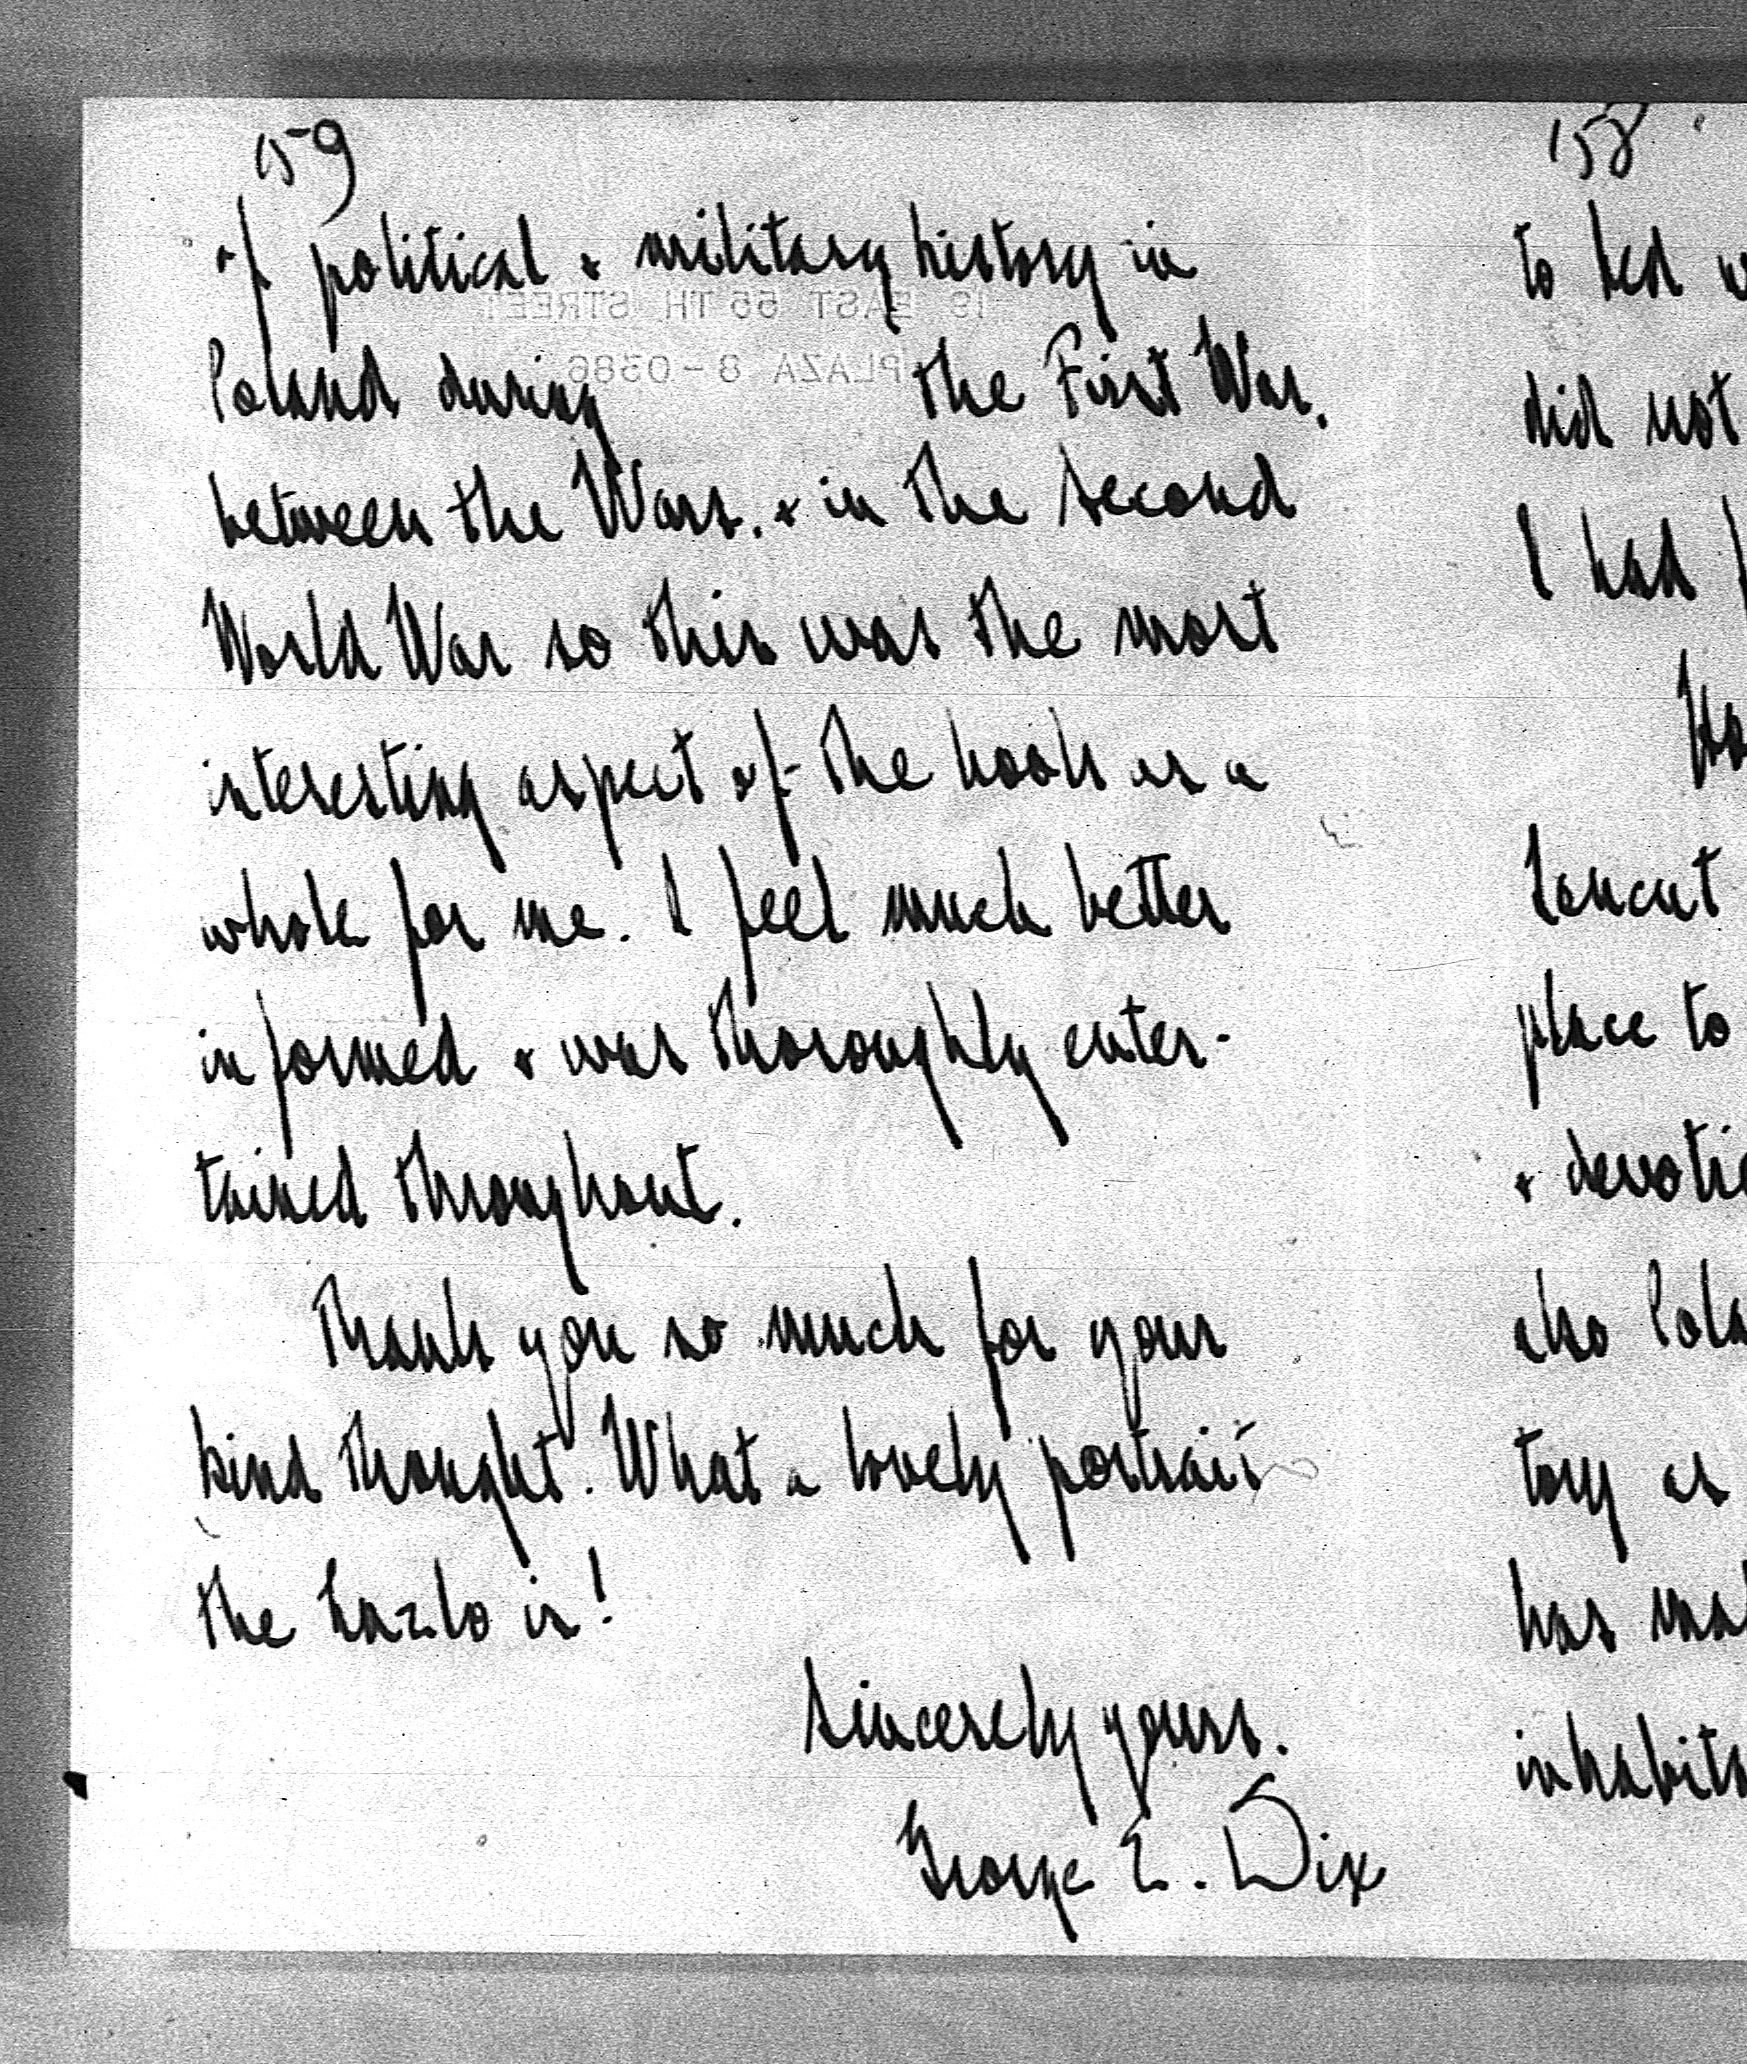 159
of political & military history in
Poland during the First War,
between the Wars, & in the Second
World War so this was the most
interesting aspect of the book as a
whole for me. I feel much better
informed & was thoroughly enter-
tained throughout.
Thank you so much for your
kind thought. What a lovely portrait
the Laszlo is!
Sincerely yours,
George E. Dix
19 EAST 55TH STREET
PLAZA 8-0386
158
to bed
did not
I had
Lancut
place to
& devotio
also Pola
tory as
has
inhabita